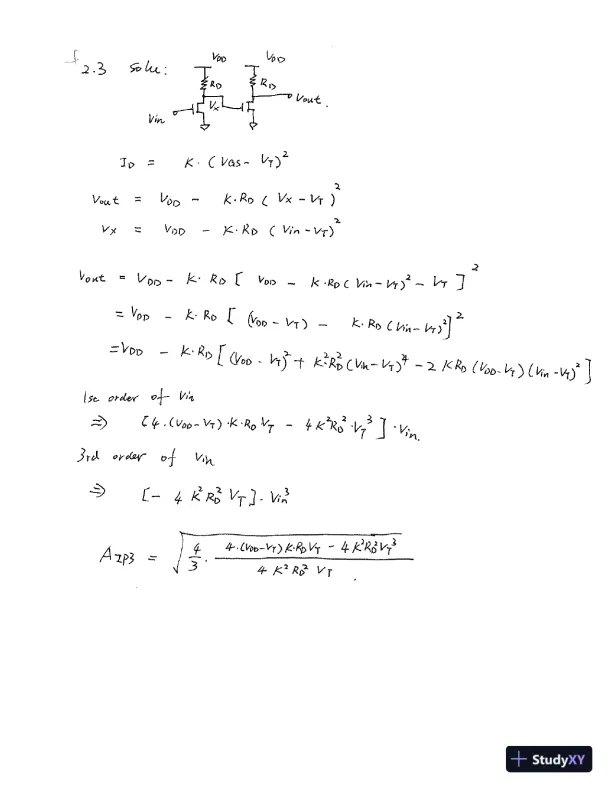 2.3 Solu:
VDD VDD
RD RD
Vx Vout.
Vin
ID = K·(VGS - VT)²
Vout = VDD - K·RD (Vx - VT)²
Vx = VDD - K·RD (Vin - VT)²
Vout = VDD - K·RD [VDD - K·RD(Vin - VT)² - VT]²
= VDD - K·RD [(VDD - VT) - K·RD(Vin - VT)²]²
= VDD - K·RD [(VDD - VT)² + K²RD²(Vin - VT)⁴ - 2KRD(VDD - VT)(Vin - VT)²]
1st order of Vin
⇒ [4·(VDD - VT)·K·RD VT - 4K²RD²·VT³]·Vin.
3rd order of Vin
⇒ [- 4K²RD²VT]·Vin³
AIP3 = √(4/3 · (4·(VDD - VT)K·RD VT - 4K²RD²VT³) / (4K²RD² VT)).
StudyXY